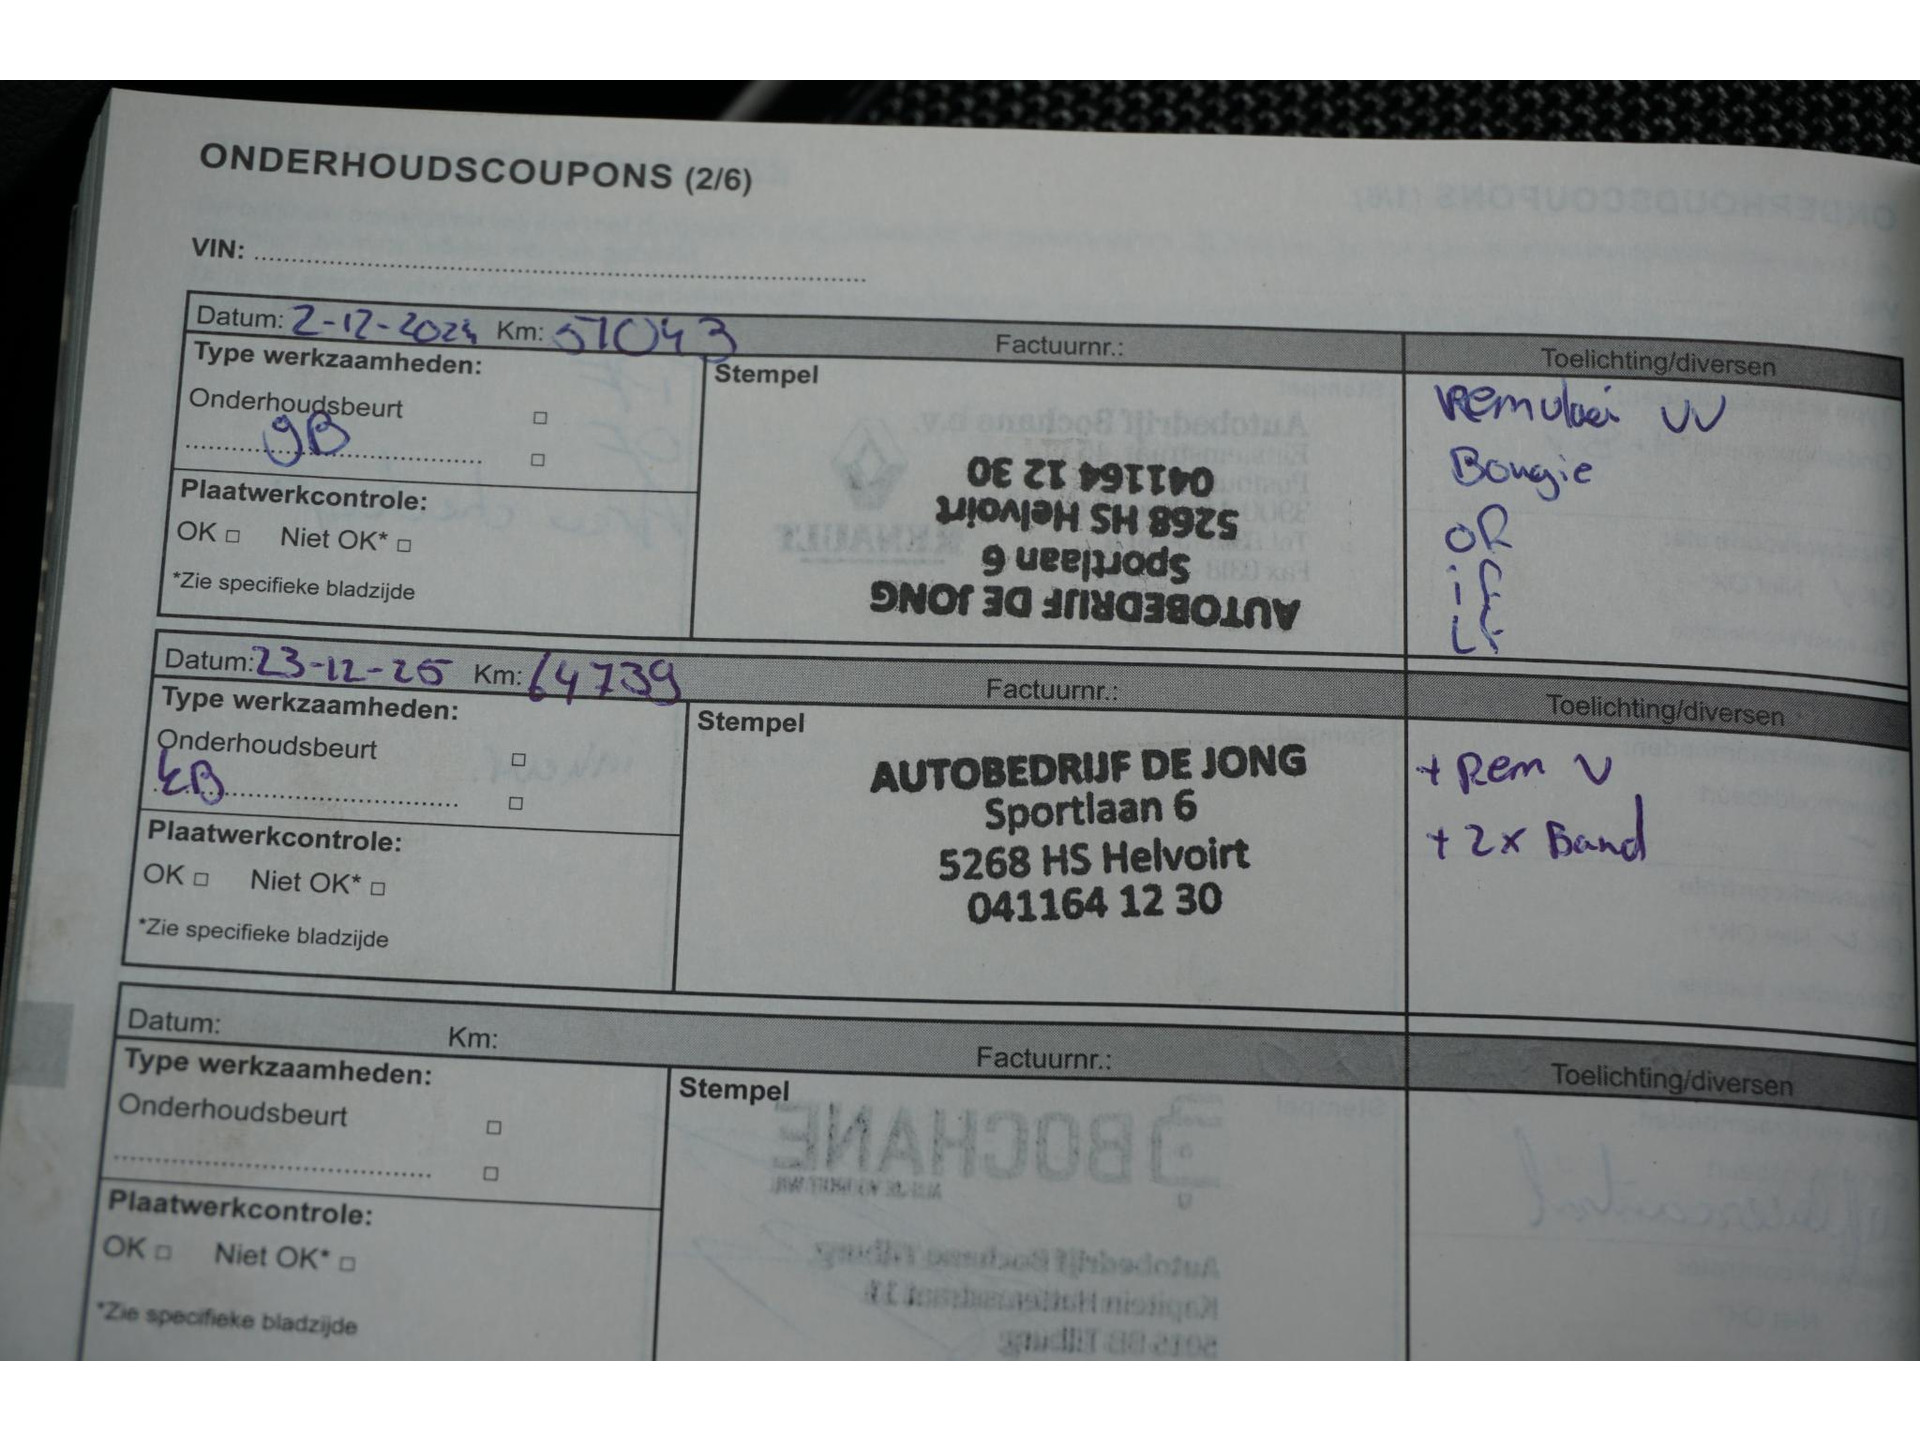 ONDERHOUDSCOUPONS (2/6)
VIN:
Datum: 2-12-2024 Km: 57043 Factuurnr.: Toelichting/diversen
Type werkzaamheden:
Onderhoudsbeurt
gB
Plaatwerkcontrole:
OK Niet OK*
*Zie specifieke bladzijde
Stempel
AUTOBEDRIJF DE JONG
Sportlaan 6
5268 HS Helvoirt
041164 12 30
Remvloei VV
Bougie
OR
iF
LF
Datum: 23-12-25 Km: 64739 Factuurnr.: Toelichting/diversen
Type werkzaamheden:
Onderhoudsbeurt
kB
Plaatwerkcontrole:
OK Niet OK*
*Zie specifieke bladzijde
Stempel
AUTOBEDRIJF DE JONG
Sportlaan 6
5268 HS Helvoirt
041164 12 30
+ Rem V
+ 2x Band
Datum: Km: Factuurnr.: Toelichting/diversen
Type werkzaamheden:
Onderhoudsbeurt
Plaatwerkcontrole:
OK Niet OK*
*Zie specifieke bladzijde
Stempel